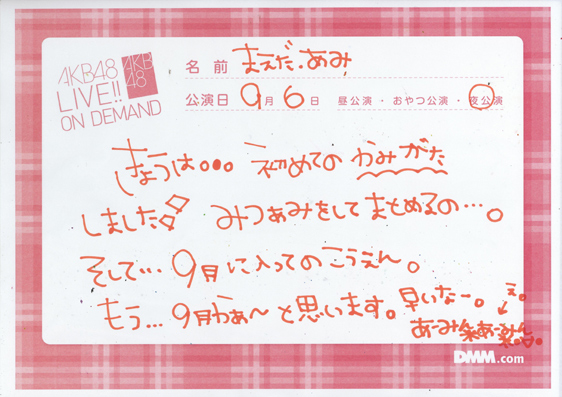 AKB48
LIVE!!
ON DEMAND
AKB
48
名前 まえだ.あみ
公演日 9月6日 昼公演・おやつ公演・夜公演
きょうは... 初めてのかみがた
しました みつあみをしてまとめるの…。
そして… 9月に入ってのこうえん。
もう… 9月かぁ〜と思います。早いなー。
え。
↓
あーみんあーみん
DMM.com